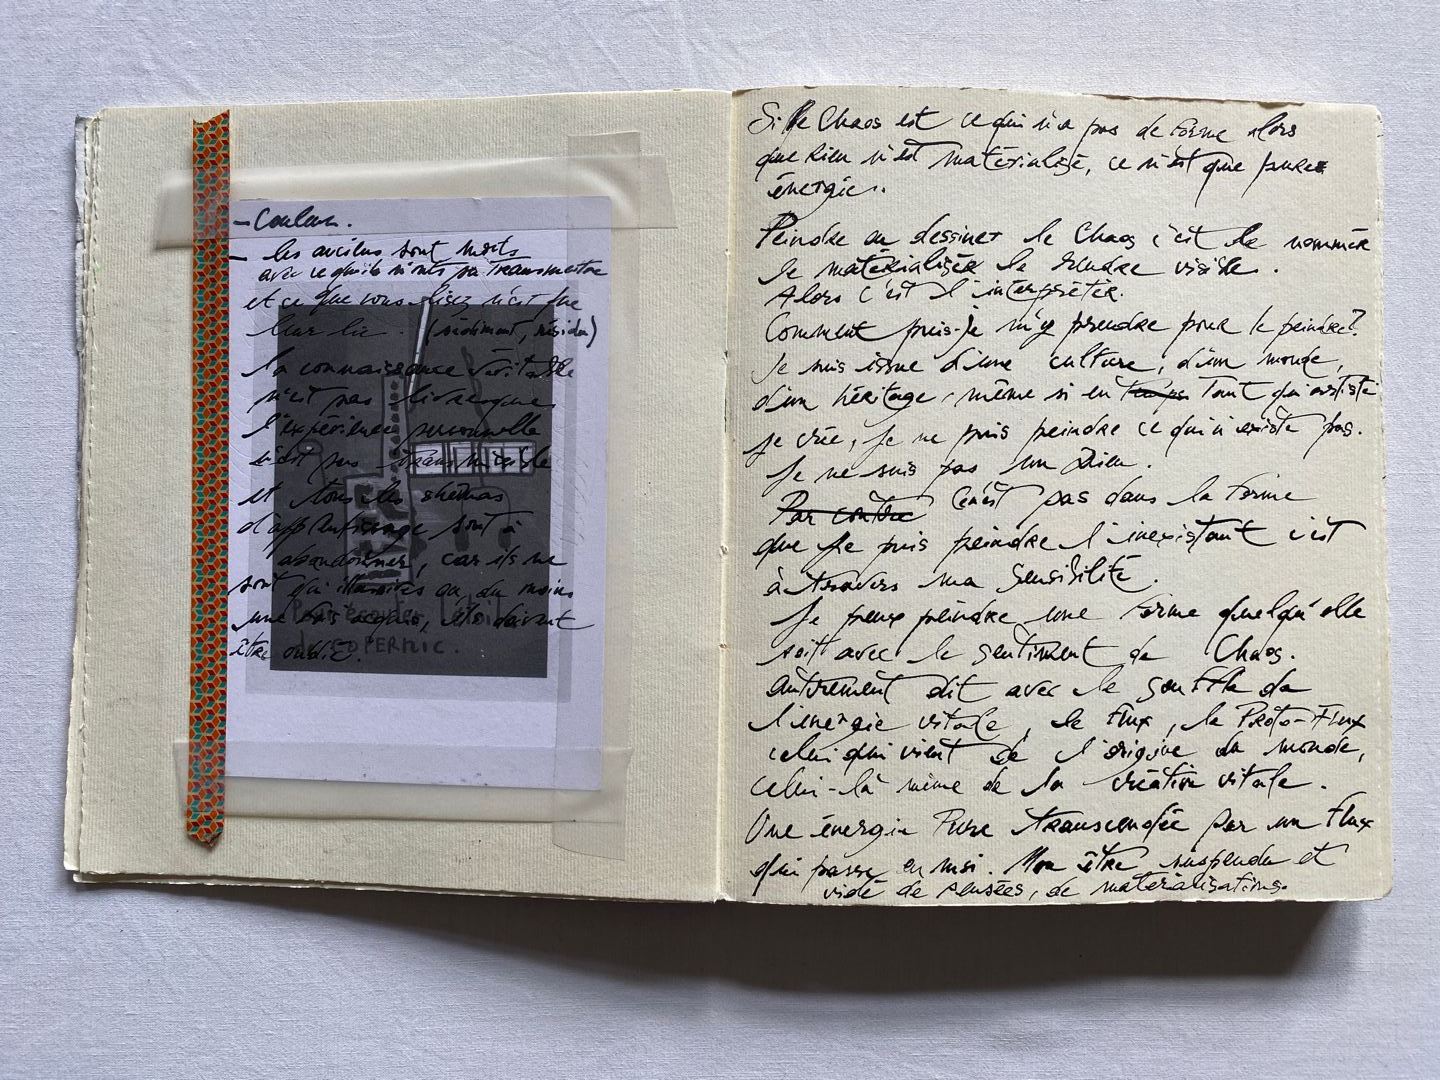 – Couleur.
– les anciens sont morts
avec ce qu'ils n'ont pu transmettre
et ce que vous lisez n'est que
leur lie. (sédiment, résidu)
la connaissance véritable
n'est pas livresque
l'expérience personnelle
n'est pas transmissible
et tous les shémas
d'apprentissage sont à
abandonner, car ils ne
sont qu'illusoires ou du moins
une fois acquis, ils doivent
être oublié.
Pour écouter
COPERNIC.
Si le Chaos est ce qui n'a pas de forme alors
que Rien n'est matérialisé, ce n'est que pure
énergie.
Peindre ou dessiner le Chaos c'est le nommer
le matérialiser le rendre visible.
Alors c'est l'interpréter.
Comment puis-je m'y prendre pour le peindre?
Je suis issue d'une culture, d'un monde,
d'un héritage, même si en temps tant qu'artiste
je crée, je ne puis peindre ce qui n'existe pas.
Je ne suis pas un Dieu.
Par contre Ce n'est pas dans la forme
que je puis peindre l'inexistant c'est
à travers ma sensibilité.
Je peux peindre une forme quelqu'elle
soit avec le sentiment de Chaos.
autrement dit avec le souffle de
l'énergie vitale, le Flux, le Proto-Flux
celui qui vient de l'origine du monde,
celui-là même de la création vitale.
Une énergie Pure transcendée par un Flux
qui passe en moi. Mon être suspendu et
vidé de pensées, de matérialisations.